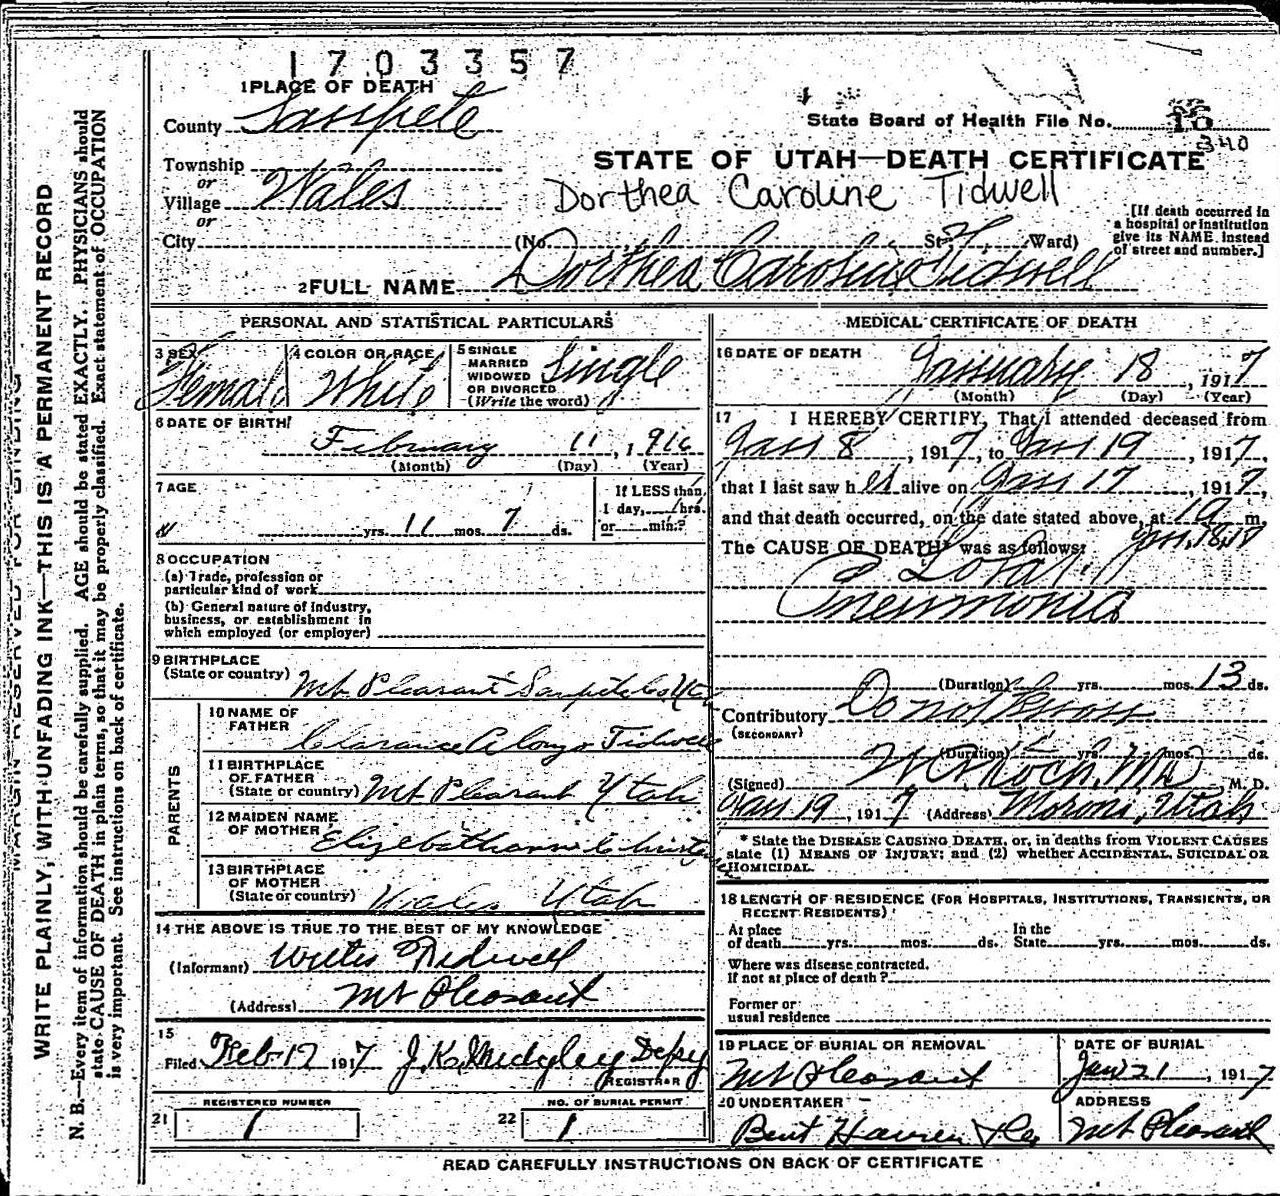 1703357
1 PLACE OF DEATH
County Sanpete
State Board of Health File No. 10
340
Township
or
Village Wales
or
City
STATE OF UTAH—DEATH CERTIFICATE
Dorthea Caroline Tidwell
(No. St. Ward)
[If death occurred in
a hospital or institution
give its NAME instead
of street and number.]
2 FULL NAME Dorthea Caroline Tidwell
PERSONAL AND STATISTICAL PARTICULARS
3 SEX Female
4 COLOR OR RACE White
5 SINGLE
MARRIED
WIDOWED
OR DIVORCED
(Write the word) Single
6 DATE OF BIRTH
February 11, 1916
(Month) (Day) (Year)
7 AGE
yrs. 11 mos. 7 ds.
If LESS than
1 day, hrs.
or min.?
8 OCCUPATION
(a) Trade, profession or
particular kind of work
(b) General nature of industry,
business, or establishment in
which employed (or employer)
9 BIRTHPLACE
(State or country) Mt. Pleasant Sanpete Co Uta
PARENTS
10 NAME OF
FATHER Clarance Alonzo Tidwell
11 BIRTHPLACE
OF FATHER
(State or country) Mt Pleasant Utah
12 MAIDEN NAME
OF MOTHER
13 BIRTHPLACE
OF MOTHER
(State or country) Wales Utah
14 THE ABOVE IS TRUE TO THE BEST OF MY KNOWLEDGE
(Informant) Tidwell
(Address) Mt Pleasant
15
Filed Feb 12 1917 J. K. Midgley Depy
REGISTRAR
REGISTERED NUMBER
21 1
NO. OF BURIAL PERMIT
22 1
MEDICAL CERTIFICATE OF DEATH
16 DATE OF DEATH
January 18, 1917
(Month) (Day) (Year)
17 I HEREBY CERTIFY, That I attended deceased from
Jan 8, 1917, to Jan 19, 1917,
that I last saw her alive on Jan 17, 1917,
and that death occurred, on the date stated above, at 10 m.
The CAUSE OF DEATH* was as follows:
Lobar
Pneumonia
(Duration) yrs. mos. 13 ds.
Contributory Do not
(SECONDARY)
(Duration) yrs. mos. ds.
(Signed) M. D.
Jan 19, 1917 (Address) Moroni, Utah
* State the DISEASE CAUSING DEATH, or, in deaths from VIOLENT CAUSES
state (1) MEANS OF INJURY; and (2) whether ACCIDENTAL, SUICIDAL OR
HOMICIDAL.
18 LENGTH OF RESIDENCE (FOR HOSPITALS, INSTITUTIONS, TRANSIENTS, OR
RECENT RESIDENTS)
At place
of death yrs. mos. ds.
In the
State yrs. mos. ds.
Where was disease contracted,
If not at place of death?
Former or
usual residence
19 PLACE OF BURIAL OR REMOVAL
Mt Pleasant
DATE OF BURIAL
Jan 21, 1917
20 UNDERTAKER
ADDRESS
Mt Pleasant
READ CAREFULLY INSTRUCTIONS ON BACK OF CERTIFICATE
MARGIN RESERVED FOR BINDING
WRITE PLAINLY, WITH UNFADING INK—THIS IS A PERMANENT RECORD
N. B.—Every item of information should be carefully supplied. AGE should be stated EXACTLY. PHYSICIANS should
state CAUSE OF DEATH in plain terms, so that it may be properly classified. Exact statement of OCCUPATION
is very important. See instructions on back of certificate.